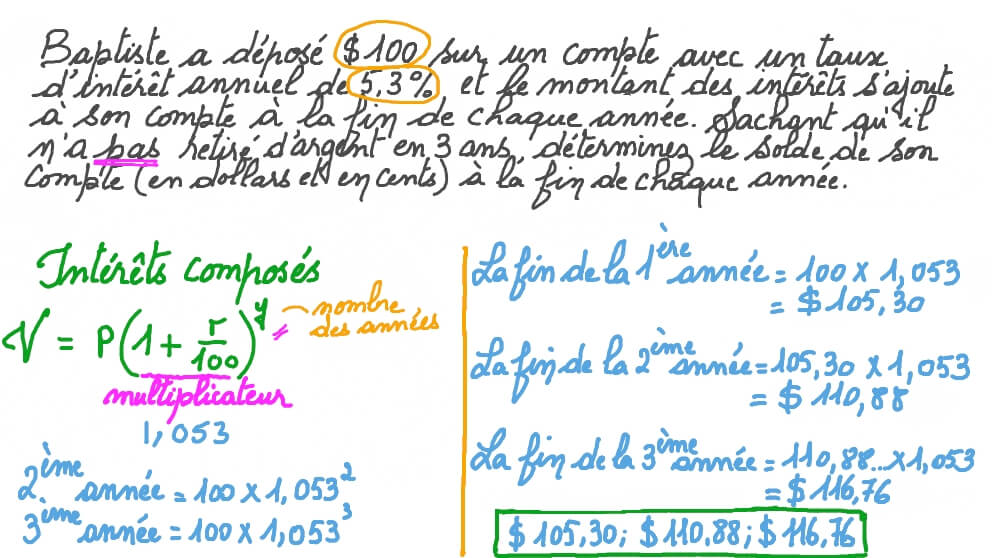 Baptiste a déposé $100 sur un compte avec un taux
d'intérêt annuel de 5,3% et le montant des intérêts s'ajoute
à son compte à la fin de chaque année. Sachant qu'il
n'a pas retiré d'argent en 3 ans, déterminez le solde de son
compte (en dollars et en cents) à la fin de chaque année.
Intérêts composés
V = P(1 + r/100)^y
nombre
des années
multiplicateur
1,053
2ème année = 100 x 1,053²
3ème année = 100 x 1,053³
La fin de la 1ère année = 100 x 1,053
= $ 105,30
La fin de la 2ème année = 105,30 x 1,053
= $ 110,88
La fin de la 3ème année = 110,88... x 1,053
= $ 116,76
$ 105,30; $ 110,88; $ 116,76